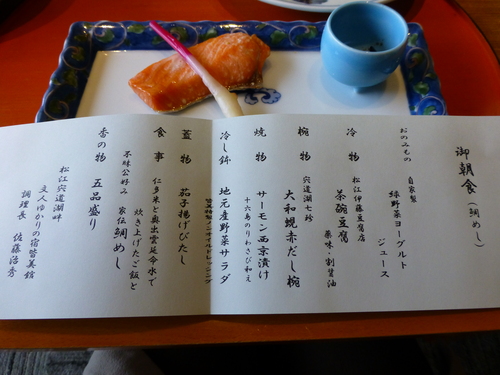 御朝食（鯛めし）
おのみもの 自家製
緑野菜ヨーグルト
ジュース
冷物 松江伊藤豆腐店
茶碗豆腐
薬味・割醤油
椀物 宍道湖七珍
大和蜆赤だし椀
焼物 サーモン西京漬け
十六島のりわさび和え
冷し鉢 地元産野菜サラダ
蓋物 茄子揚げびたし
食事 仁多米と奥出雲延命水で
炊き上げたご飯と
不昧公好み 家伝鯛めし
香の物 五品盛り
松江宍道湖畔
文人ゆかりの宿皆美館
調理長 佐藤浩秀